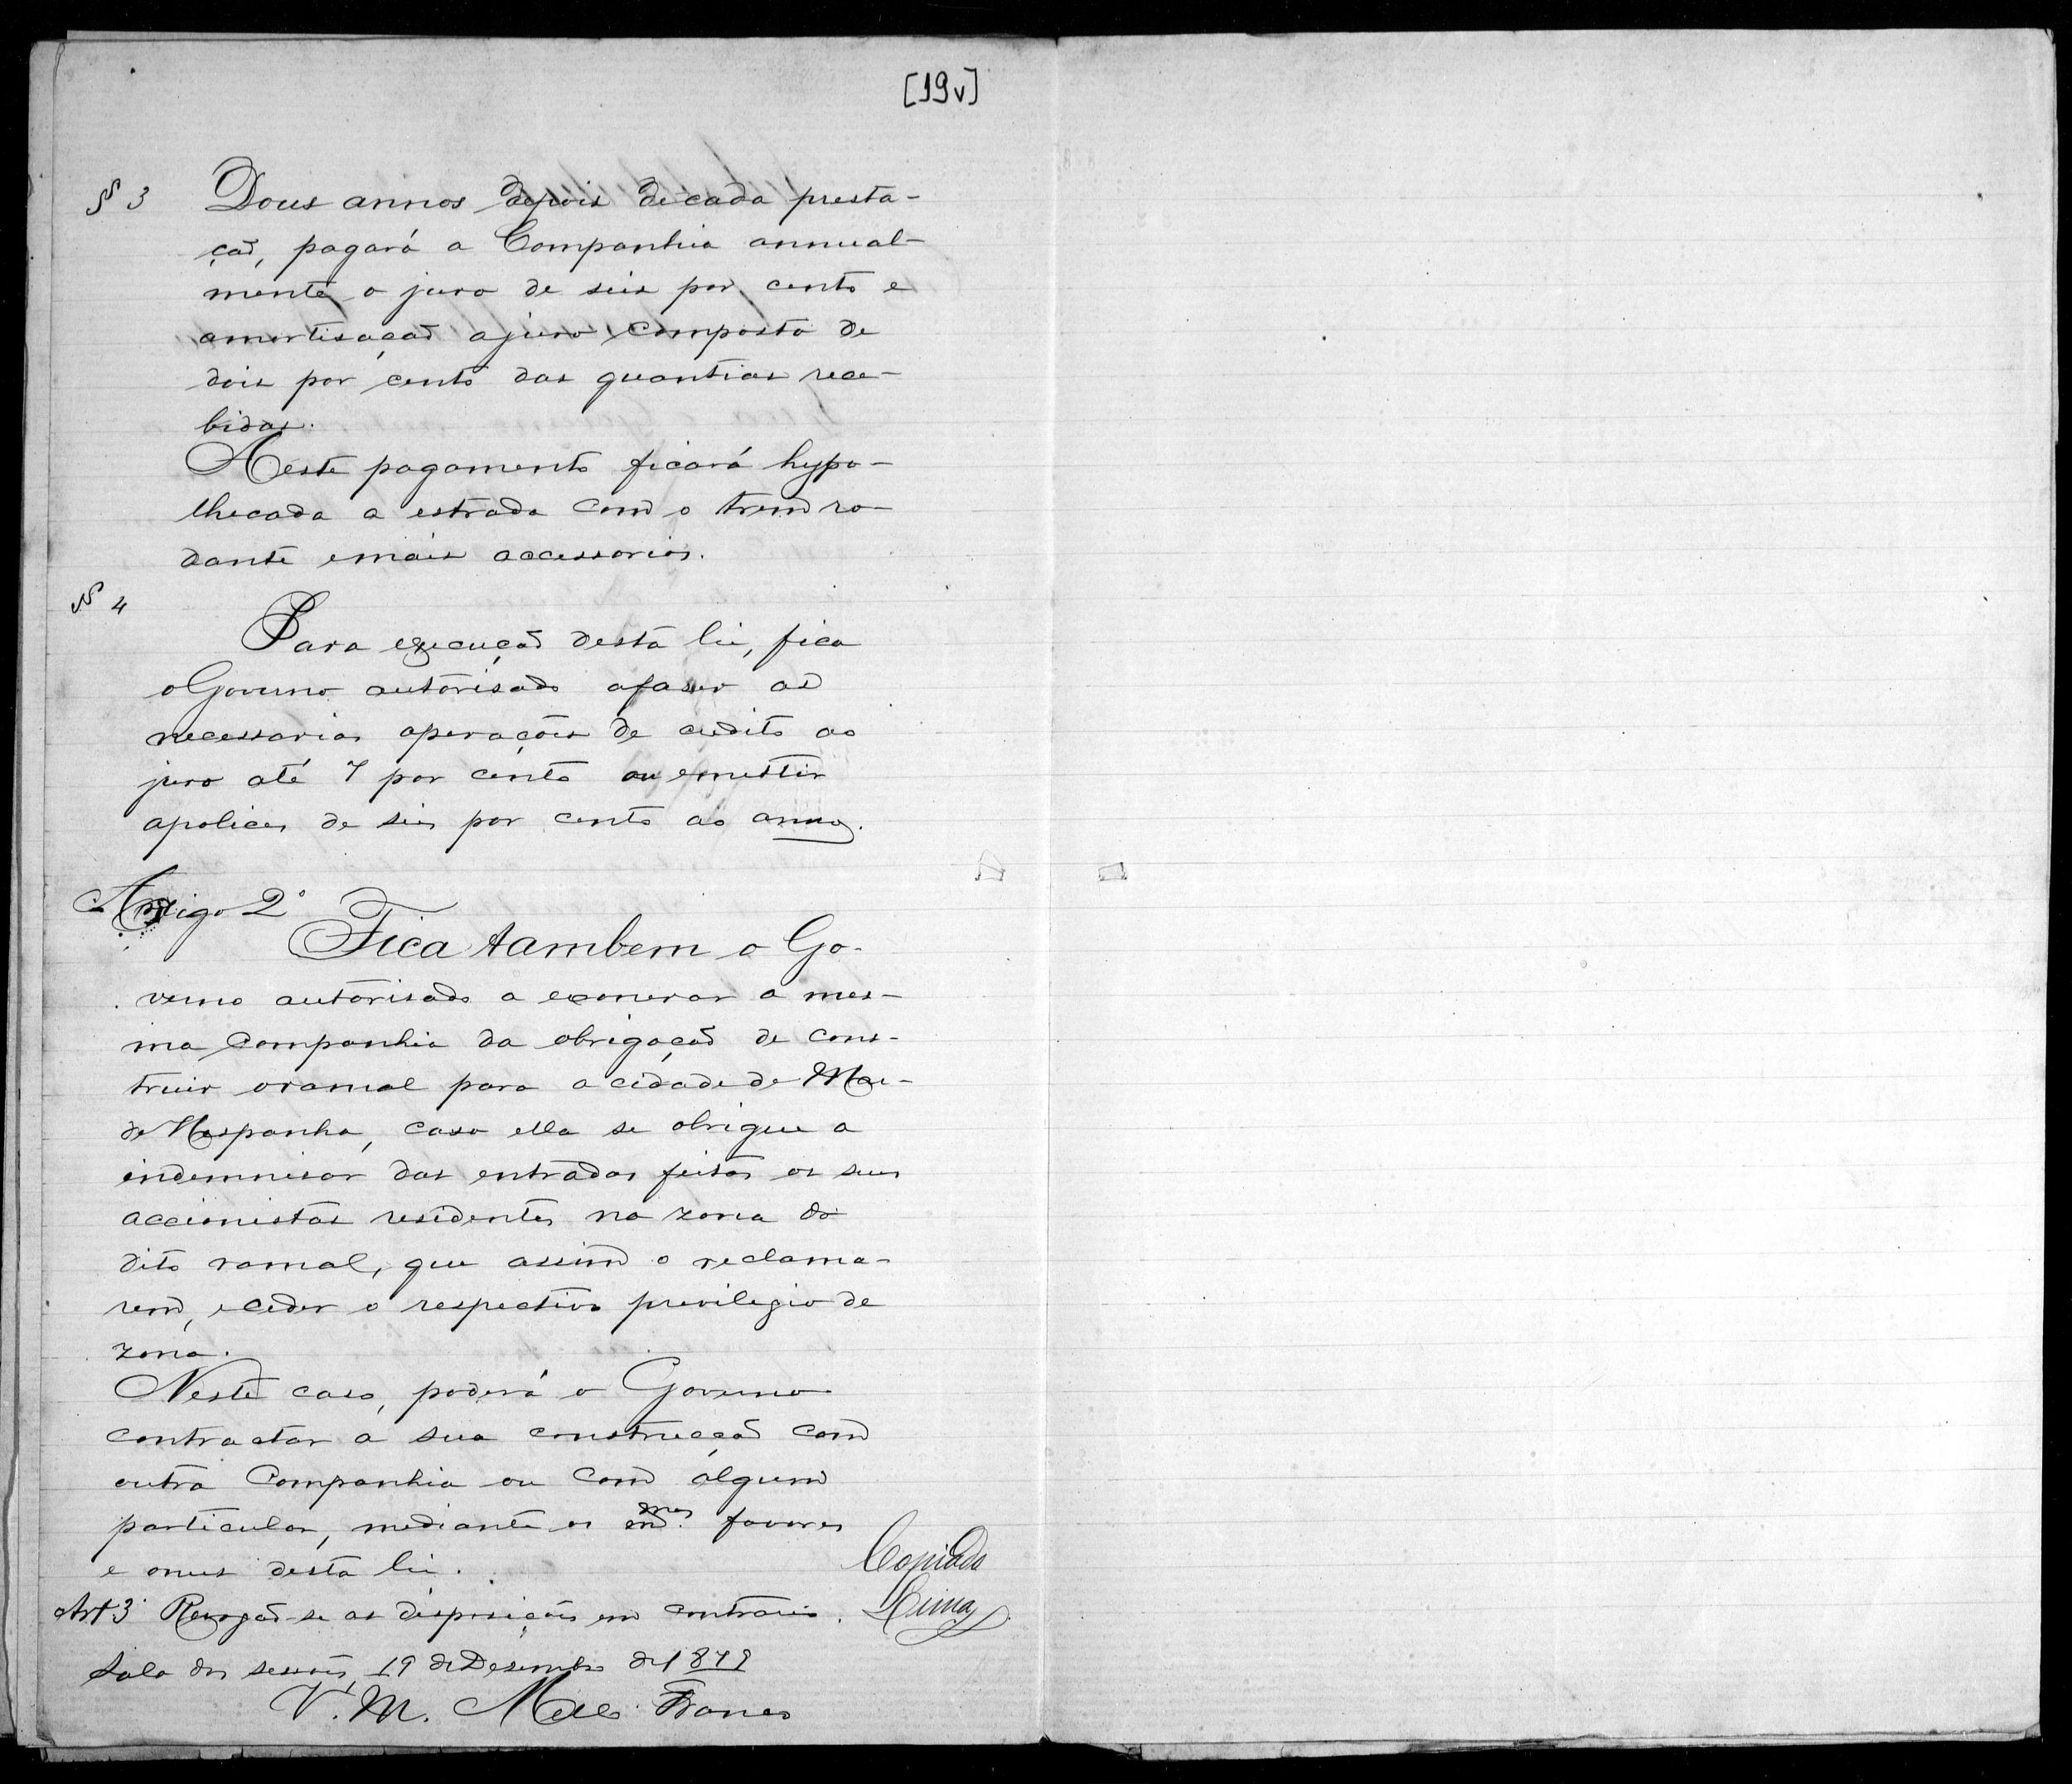 [19v]
§ 3 Dous annos depois de cada presta-
çaõ, pagará a Companhia annual-
mente o juro de seis por cento e
amortisaçaõ a juro composto de
dois por cento das quantias rece-
bidas.
A este pagamento ficará hypo-
thecada a estrada com o trem ro-
dante e mais accessorios.
§ 4
Para execuçaõ desta lei, fica
o Governo autorisado a faser as
necessarias operações de credito ao
juro até 7 por cento ou emittir
apolices de seis por cento ao anno.
Artigo 2º
Fica tambem o Go-
verno autorisado a exonerar a mes-
ma Companhia da obrigaçaõ de cons-
truir o ramal para a cidade de Mar
de Hespanha, caso ella se obrigue a
indemnisar das entradas feitas os seus
accionistas residentes na zona do
dito ramal, que assim o reclama-
rem, e ceder o respectivo previlegio de
zona.
Neste caso, poderá o Governo
contractar a sua construcçaõ com
outra Companhia ou com algum
particular, mediante os favores
e onus desta lei.
Copiada
Lima
Art 3º Revogaõ-se as disposições em contrario.
Sala das sessões, 19 de Desembro de 1879
V. M. Mello Franco